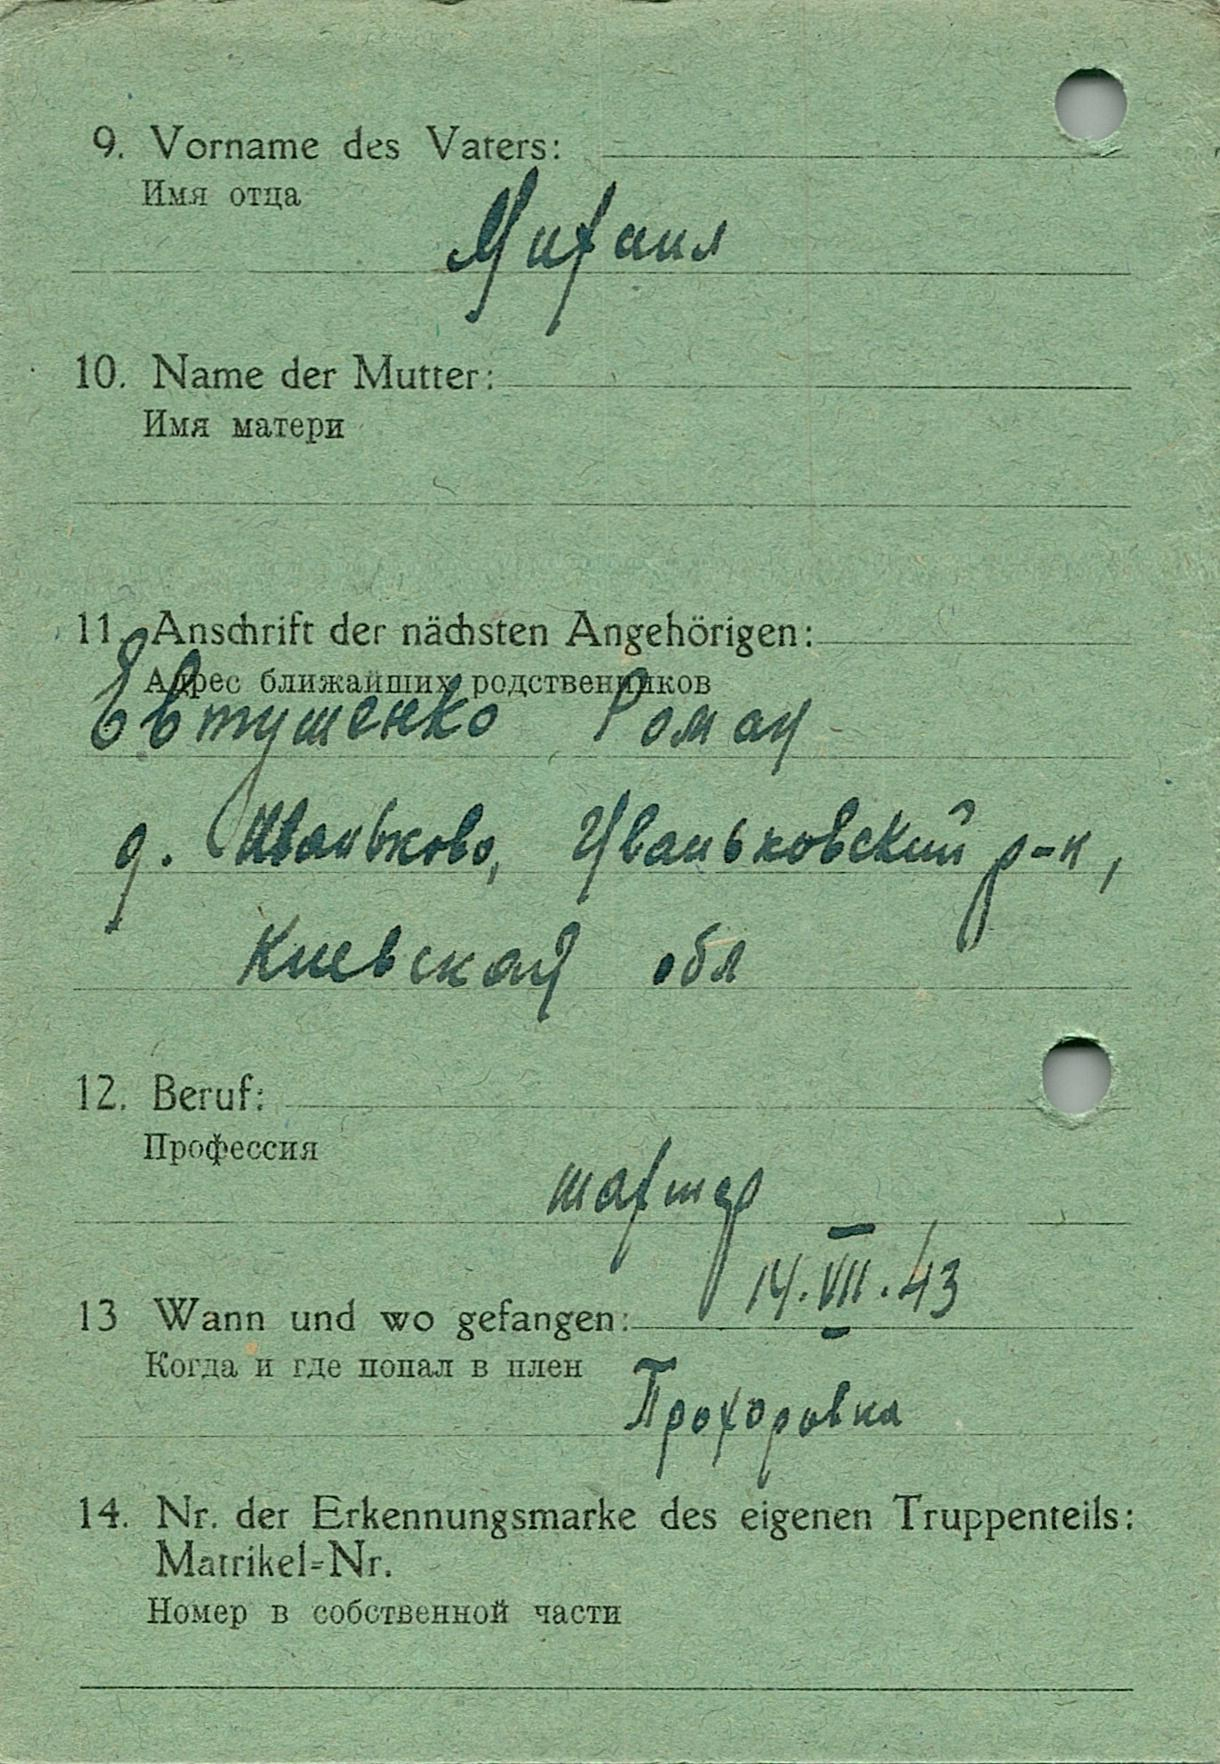 9. Vorname des Vaters:
Имя отца
Михаил
10. Name der Mutter:
Имя матери
11. Anschrift der nächsten Angehörigen:
Адрес ближайших родственников
Евтушенко Роман
д. Иваньково, Иваньковский р-н,
Киевская обл
12. Beruf:
Профессия
шахтер
14.VII.43
13 Wann und wo gefangen:
Когда и где попал в плен
Прохоровка
14. Nr. der Erkennungsmarke des eigenen Truppenteils:
Matrikel-Nr.
Номер в собственной части